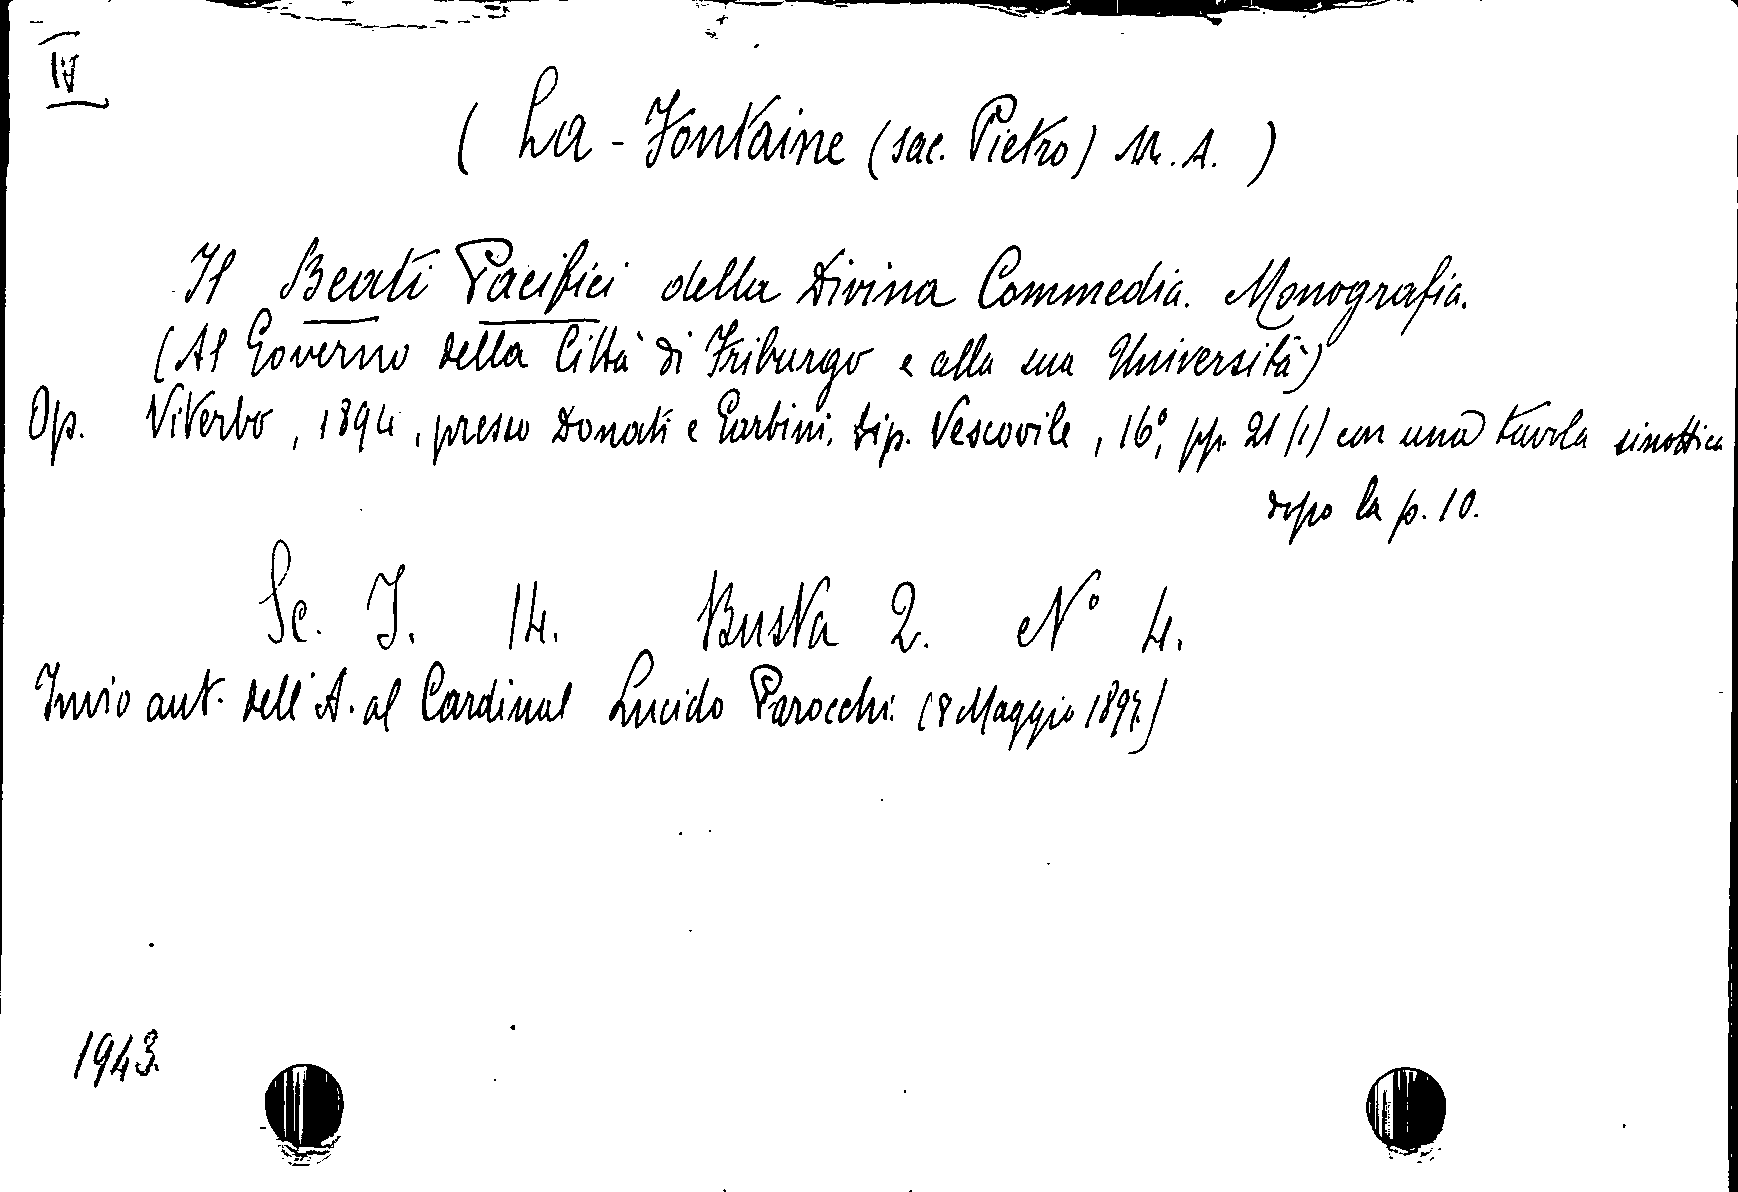 IV
( La-Fontaine (sac. Pietro) M. A. )
Il Beati Pacifici della Divina Commedia. Monografia.
(Al Governo della Città di Friburgo e alla sua Università)
Op. Viterbo, 1894, presso Donati e Garbini, tip. Vescovile, 16°, pp. 21 (1) con una tavola sinottica
dopo la p. 10.
Sc. I. 14. Busta 2. N° 4.
Invio aut. dell'A. al Cardinal Lucido Parocchi (8 Maggio 1894)
1943.